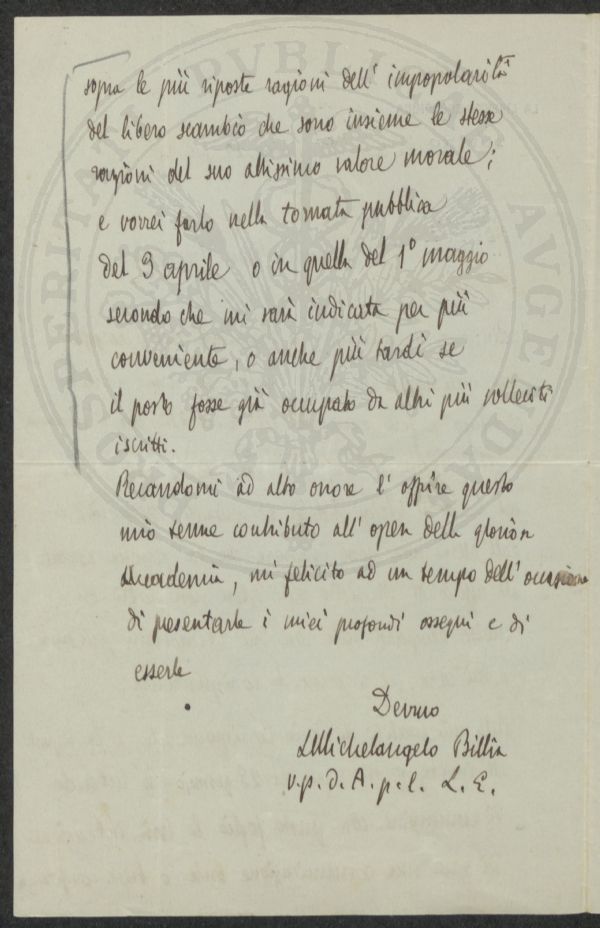 sopra le più riposte ragioni dell' impopolarità
del libero scambio che sono insieme le stesse
ragioni del suo altissimo valore morale;
e vorrei farlo nella tornata pubblica
del 3 aprile o in quella del 1° maggio
secondo che mi sarà indicata per più
conveniente, o anche più tardi se
il posto fosse già occupato da altri più solleciti
iscritti.
Recandomi ad alto onore l' offrire questo
mio tenue contributo all' opera della gloriosa
Accademia, mi felicito ad un tempo dell' occasione
di presentarle i miei profondi ossequi e di
esserle
Devmo
LMichelangelo Billia
v.p.d.A.p.l. L.E.
PROSPERITATI PVBLICAE AVGENDAE